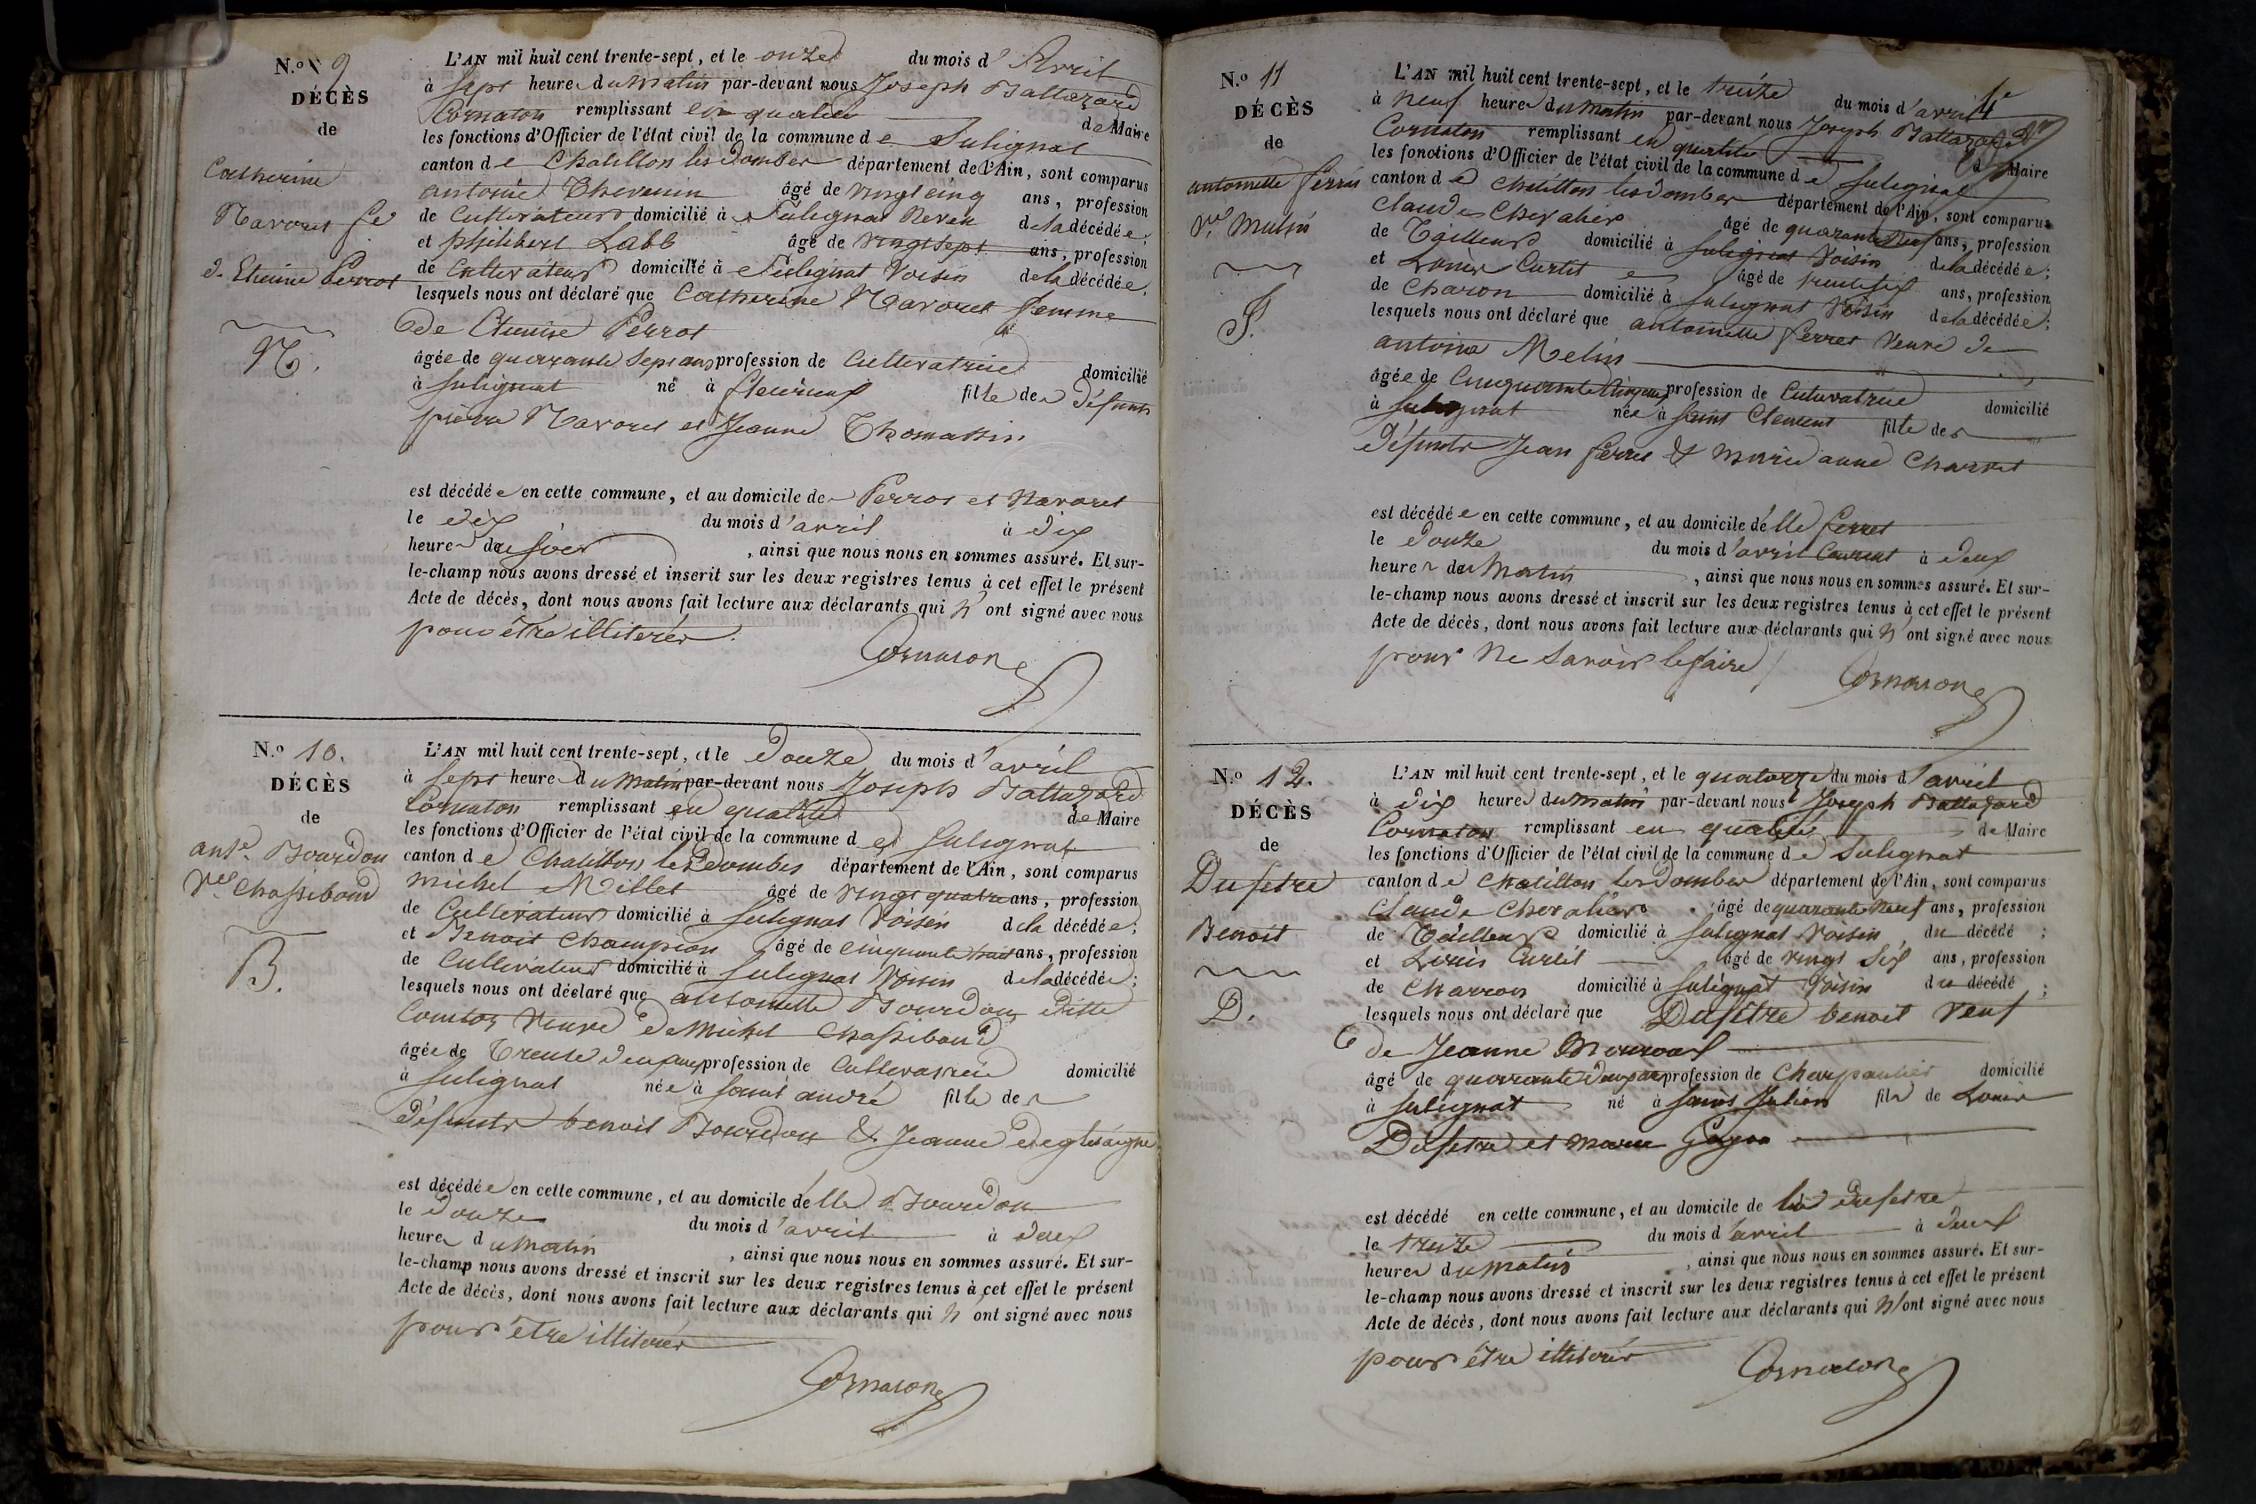 N.o 9
DÉCÈS
de
Catherine
Navoret fe
d. Etienne Perrot
N.
L'AN mil huit cent trente-sept, et le onze du mois d'Avril
à sept heure du matin par-devant nous Joseph Baltazard
Cornaton remplissant en qualité de Maire
les fonctions d'Officier de l'état civil de la commune de Sulignat
canton de Chatillon les Dombes département de l'Ain, sont comparus
antoine Thevenin âgé de vingt cinq ans, profession
de Cultivateur domicilié à Sulignat Neveu de la décédée;
et philibert Labb âgé de vingt sept ans, profession
de Cultivateur domicilié à Sulignat Voisin de la décédée,
lesquels nous ont déclaré que Catherine Navoret femme
de Etienne Perrot
âgée de quarante sept ans profession de Cultivatrice domicilié
à Sulignat né à fleurieux fille de Défunts
pierre Navoret et Jeanne Thomassin
est décédée en cette commune, et au domicile de Perrot et Navoret
le dix du mois d'avril à dix
heure du soir, ainsi que nous nous en sommes assuré. Et sur-
le-champ nous avons dressé et inscrit sur les deux registres tenus à cet effet le présent
Acte de décès, dont nous avons fait lecture aux déclarants qui n'ont signé avec nous
pour être illiterés.
Cornaton
N.o 10.
DÉCÈS
de
ant.e Bourdon
Ve Chassiboud
B.
L'AN mil huit cent trente-sept, et le Douze du mois d'avril
à sept heure du Matin par-devant nous Joseph Baltazard
Cornaton remplissant en qualité de Maire
les fonctions d'Officier de l'état civil de la commune de Sulignat
canton de Chatillon les Dombes département de l'Ain, sont comparus
michel Millet âgé de vingt quatre ans, profession
de Cultivateur domicilié à Sulignat Voisin de la décédée;
et Benoit Champion âgé de cinquante huit ans, profession
de Cultivateur domicilié à Sulignat Voisin de la décédée;
lesquels nous ont déclaré que antoinette Bourdon ditte
Comtoz Veuve de Michel Chassiboud
âgée de Trente deux ans profession de Cultivatrice domicilié
à Sulignat née à saint andré fille de
Défunts benoit Bourdon & Jeanne
est décédée en cette commune, et au domicile de lle Bourdon
le Douze du mois d'avril à deux
heure du Matin, ainsi que nous nous en sommes assuré. Et sur-
le-champ nous avons dressé et inscrit sur les deux registres tenus à cet effet le présent
Acte de décès, dont nous avons fait lecture aux déclarants qui n'ont signé avec nous
pour être illiterés
Cornaton
N.o 11
DÉCÈS
de
antoinette ferret
Ve. Mulin
F.
L'AN mil huit cent trente-sept, et le treize du mois d'avril
à neuf heure du Matin par-devant nous Joseph Baltazard
Cornaton remplissant en qualité de Maire
les fonctions d'Officier de l'état civil de la commune de Sulignat
canton de Chatillon les Dombes département de l'Ain, sont comparus
Claude Chevalier âgé de quarante neuf ans, profession
de Tailleur domicilié à Sulignat Voisin de la décédée;
et Louis Curtil âgé de vingt six ans, profession
de Charon domicilié à Sulignat Voisin de la décédée;
lesquels nous ont déclaré que antoinette ferret Veuve de
antoine Melin
âgée de Cinquante cinq ans profession de Cultivatrice domicilié
à Sulignat née à Saint Clement fille de
Défunts Jean ferret & marie anne Charvet
est décédée en cette commune, et au domicile de lle ferret
le Douze du mois d'avril Courant à deux
heure du Matin, ainsi que nous nous en sommes assuré. Et sur-
le-champ nous avons dressé et inscrit sur les deux registres tenus à cet effet le présent
Acte de décès, dont nous avons fait lecture aux déclarants qui n'ont signé avec nous
pour ne savoir le faire
Cornaton
N.o 12.
DÉCÈS
de
Dufetre
Benoit
D.
L'AN mil huit cent trente-sept, et le quatorze du mois d'avril
à dix heure du matin par-devant nous Joseph Baltazard
Cornaton remplissant en qualité de Maire
les fonctions d'Officier de l'état civil de la commune de Sulignat
canton de Chatillon les Dombes département de l'Ain, sont comparus
Claude Chevalier âgé de quarante neuf ans, profession
de Tailleur domicilié à Sulignat Voisin du décédé;
et Louis Curtil âgé de vingt six ans, profession
de Charron domicilié à Sulignat Voisin du décédé;
lesquels nous ont déclaré que Dufetre benoit Veuf
de Jeanne
âgé de quarante deux ans profession de Charpantier domicilié
à Sulignat né à Saint Julien fils de Louis
Dufetre et marie Guyon
est décédé en cette commune, et au domicile de lui Dufetre
le treize du mois d'avril à deux
heure du matin, ainsi que nous nous en sommes assuré. Et sur-
le-champ nous avons dressé et inscrit sur les deux registres tenus à cet effet le présent
Acte de décès, dont nous avons fait lecture aux déclarants qui n'ont signé avec nous
pour être illiterés
Cornaton